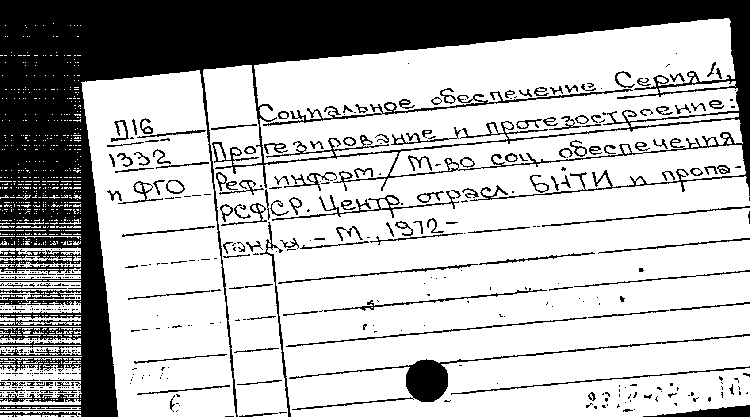 Социальное обеспечение. Серия 4,
П16 Протезирование и протезостроение:
1332 Реф. информ. / М-во соц. обеспечения
п ФГО РСФСР. Центр. отрасл. БНТИ и пропа-
ганды. – М., 1972–
6